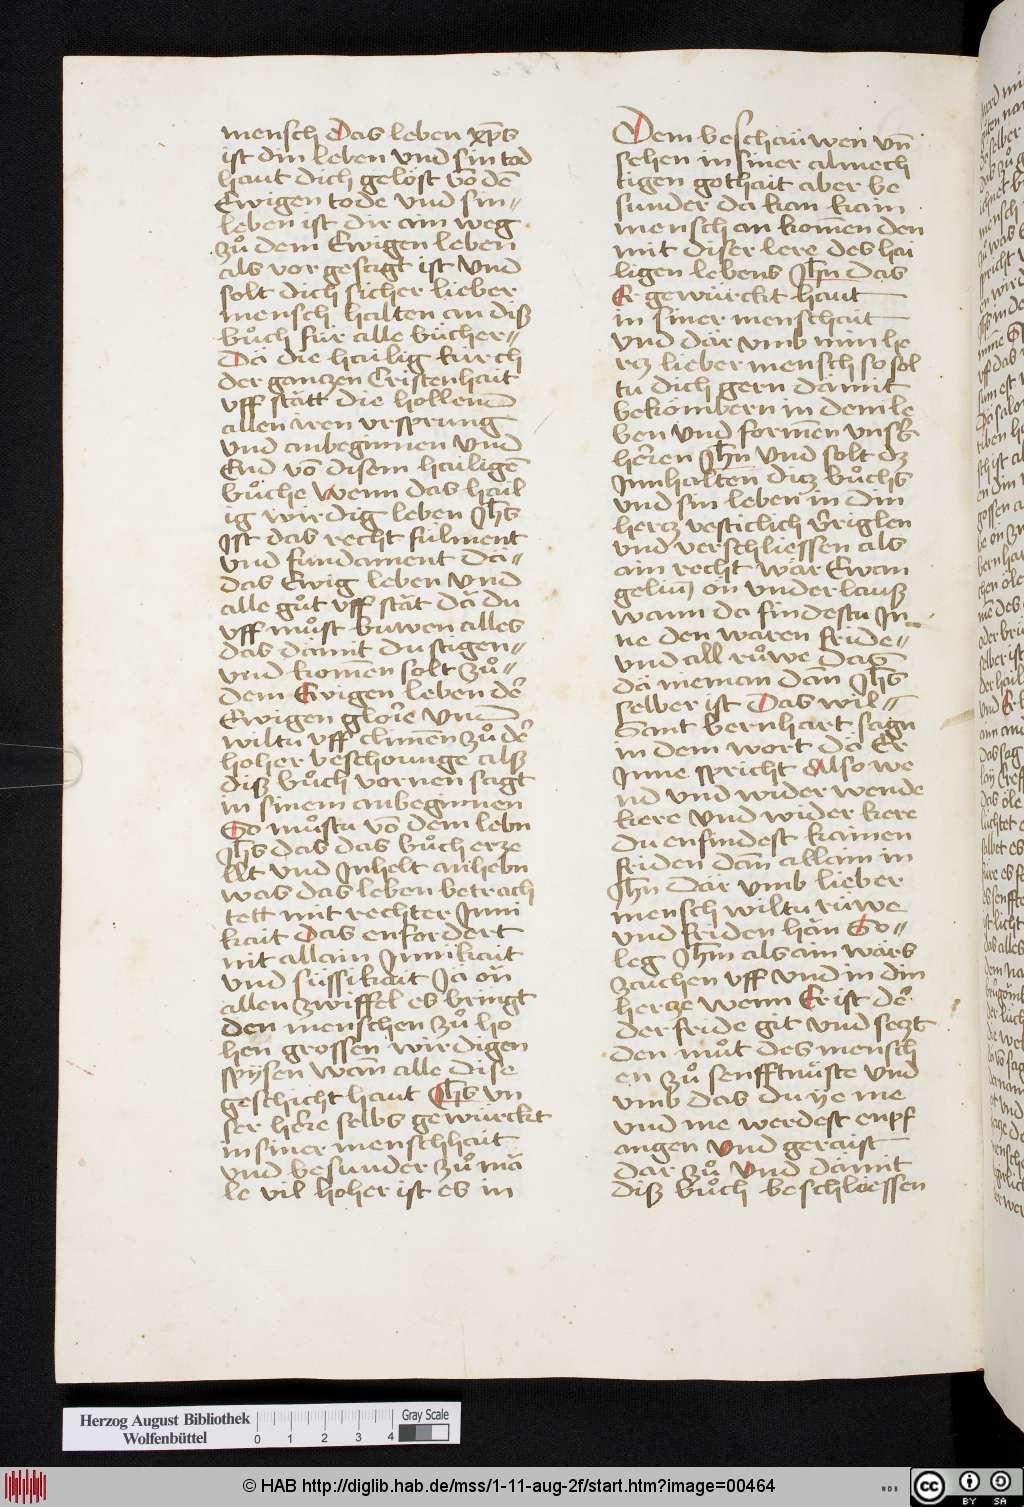 mensch Das leben xp̄s
ist din leben vnd sin tod
haut dich gelöst vō dē
Ewigen tode vnd sin⸗
leben ist dir ain weg
zů dem Ewigen leben
als vor gesagt ist vnd
solt dich sicher lieber
mensch halten an diß
bůch für alle bücher⸗
Dā die hailig kirch
der ganczen Cristenhait
vff stātt die hollend
allen iren vrsprung
vnd anbeginnen vnd
End vō disem hailigē
bůche Wenn das hail
ig wirdig leben Jh̄s
Jst das recht fülment
vnd fundament Dā⸗
das Ewig leben vnd
alle gůt vff stāt dā du
vff můst buwen alles
das dāmit du stigen⸗
vnd komēn solt zů⸗
dem Ewigen leben dē
Ewigen glorie vnd
wiltu vff climēn zů dē
hoher beschounge alß
diß bůch vornen sagt
in sinem anbeginnen
So můstu vō dem lebn
Jh̄s das das bůch erze
llt vnd Jnhelt anhebn
was das leben betrach
tett mit rechter Jnni
kait Das enfordert
nit allain Jnnikait
vnd süssikait Jā on
allen zwiffel es bringt
den menschen zů ho
hen grossen wirdigen
spÿsen Wan̄ alle dise
geschicht haut Jh̄s vn
ser here selbs gewürckt
in siner menschhait
vnd besunder zů mā
le vil hoher ist es in
Dem beschaüwen vn̄
sehen in siner almech
tigen gothait aber be
sunder da kan kain
mensch an komēn den
mit diser lere des hai
ligen lebens Jh̄u das
Er gewürckt haut
in siner menschait
vnd dār vmb min he
rcz lieber mensch so sol
tu dich gern dāmit
bekömbern in dem le
ben vnd formēn vnsß
heren Jh̄u vnd solt dz
Jnnhalten dicz bůchs
vnd sin leben in din
hercz vesticlich v̄riglen
vnd verschliessen als
ain recht wār Ewan
gelium on vnderlauß
wann da findestu Jn⸗
ne den waren fride⸗
vnd all růwe Das
dā nieman dan̄ Jh̄s
selber ist Das wil⸗
Sant bernhart sagn
in dem wort dā Er
Jnne spricht Also we
nd vnd wider wende
kere vnd wider kere
du enfindest kainen
friden dan̄ allain in
Jh̄u Dār vmb lieber
mensch wiltu rüwe
vnd friden hān So⸗
leg Jh̄m als ain wārs
zaichen vff vnd in din
hercze wenn Er ist dē
der fride git vnd seczt
den můt des mensch
en zů senfftmůste vnd
vmb das du ÿe me
vnd me werdest enpf
angen vnd geraist
dar zů Vnd dāmit
diß bůch beschliessen
Herzog August Bibliothek
Wolfenbüttel
0 1 2 3 4
Gray Scale
© HAB http://diglib.hab.de/mss/1-11-aug-2f/start.htm?image=00464
WDB
cc BY SA